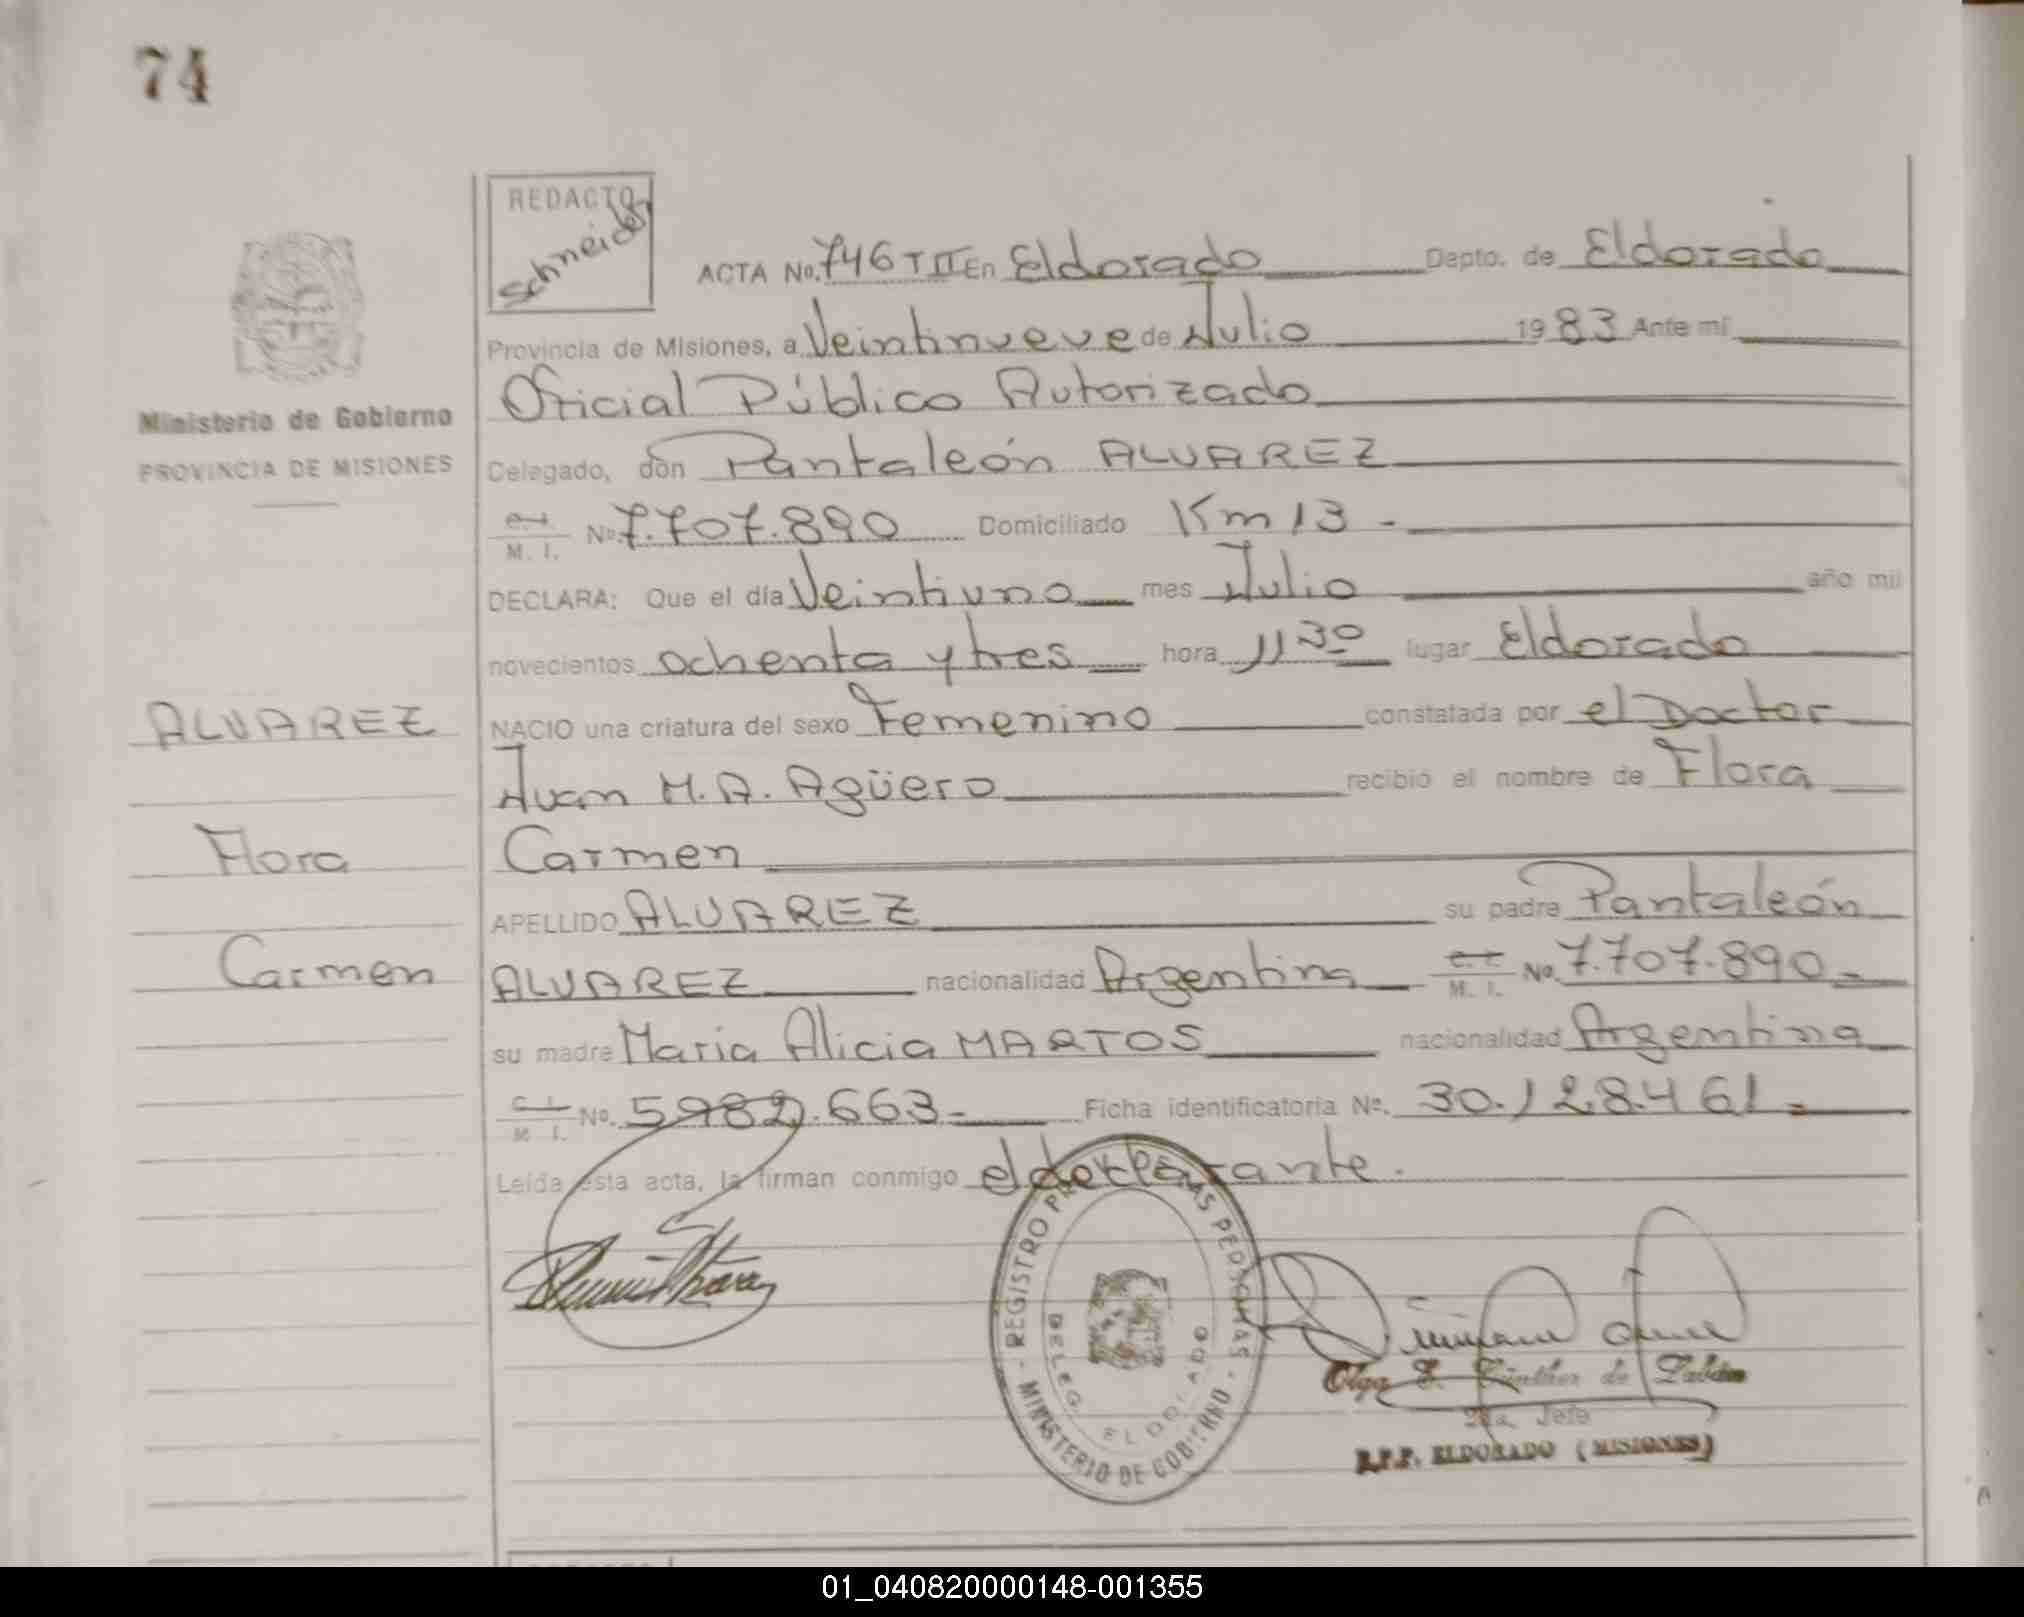 74
REDACTO
Schneider
ACTA No. 746 T II En Eldorado Depto. de Eldorado
Provincia de Misiones, a Veintinueve de Julio 1983 Ante mí
Oficial Público Autorizado
Ministerio de Gobierno
PROVINCIA DE MISIONES
Delegado, don Pantaleón ALVAREZ
c.i. M. I. No. 7.707.890 Domiciliado Km 13 -
DECLARA: Que el día Veintiuno mes Julio año mil
novecientos ochenta y tres hora 11 30 lugar Eldorado
ALVAREZ
NACIO una criatura del sexo Femenino constatada por el Doctor
Juan M. A. Agüero recibió el nombre de Flora
Flora
Carmen
APELLIDO ALVAREZ su padre Pantaleón
Carmen
ALVAREZ nacionalidad Argentina c.i. M. I. No. 7.707.890-
su madre Maria Alicia MARTOS nacionalidad Argentina
c.i. M. I. No. 5982.663- Ficha identificatoria Nº. 30.128.461-
Leída esta acta, la firman conmigo el declarante.
REGISTRO PERSONAS
MINISTERIO DE GOBIERNO
DELEG. ELDORADO
Olga Günther de
2da. Jefe
R.P.P. ELDORADO (MISIONES)
01_040820000148-001355